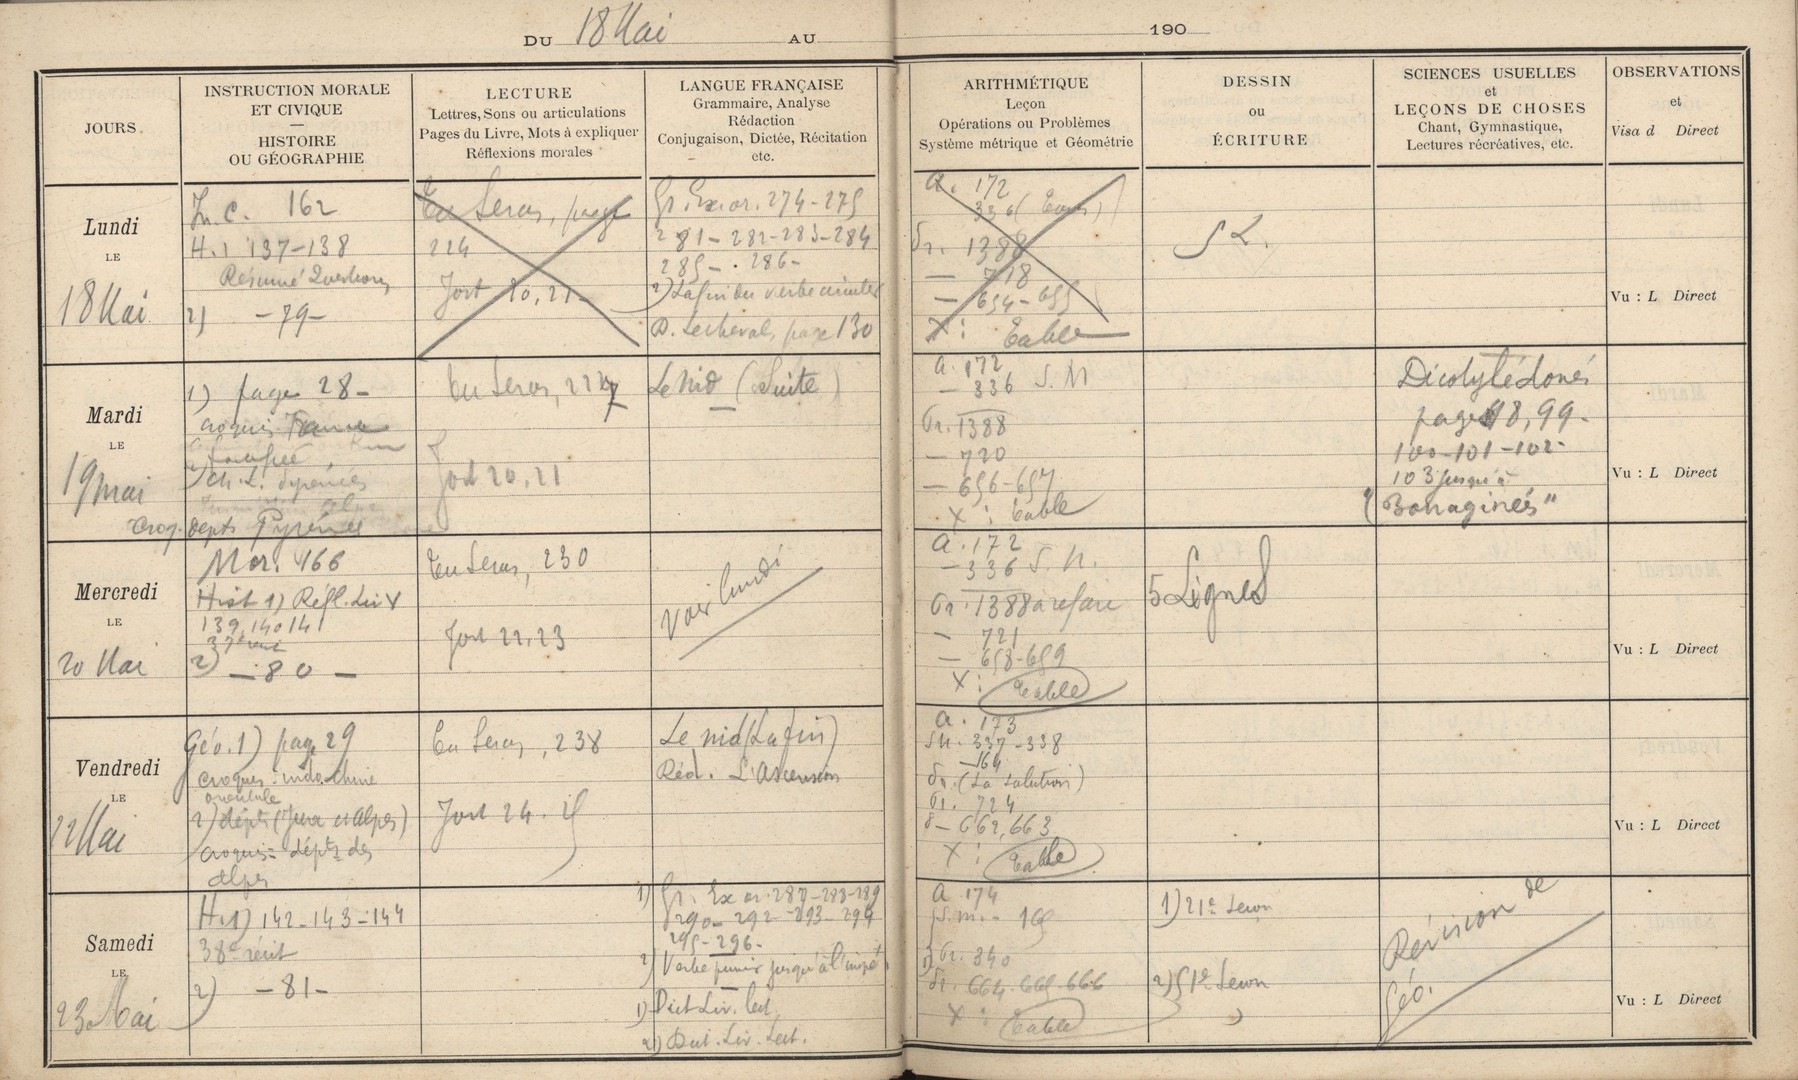 DU 18 Mai AU 190
JOURS
INSTRUCTION MORALE
ET CIVIQUE
HISTOIRE
OU GÉOGRAPHIE
LECTURE
Lettres, Sons ou articulations
Pages du Livre, Mots à expliquer
Réflexions morales
LANGUE FRANÇAISE
Grammaire, Analyse
Rédaction
Conjugaison, Dictée, Récitation
etc.
ARITHMÉTIQUE
Leçon
Opérations ou Problèmes
Système métrique et Géométrie
DESSIN
ou
ÉCRITURE
SCIENCES USUELLES
et
LEÇONS DE CHOSES
Chant, Gymnastique,
Lectures récréatives, etc.
OBSERVATIONS
et
Visa d Direct
Lundi
LE
18 Mai
In. C. 162
H. 1 137-138
Résumé Questions
2) -79-
Tu Seras, page
224
20, 21
Gr. Ex. or. 274-275
281-282-283-284
285-. 286-
2) La fin du verbe
D. Le cheval, page 130
a. 172
336
1388
- 718
- 654-655
X : Table
5 L.
Vu : L Direct
Mardi
LE
19 mai
1) page 28-
croquis
Pyrénées
Croq. depts Pyrénées
Tu Seras, 227
20, 21
Le Nid (Suite)
a. 172
- 336 S. M
1388
- 720
- 656-657
X : Table
Dicotylédones
pages 98, 99-
100-101-102-
103 jusqu'à
Vu : L Direct
Mercredi
LE
20 Mai
Mor. 166
Hist 1) Réfl. Liv
139, 140 141
2) - 80 -
Tu Seras, 230
22, 23
Voir lundi
a. 172
- 336 S. M.
1388 à refaire
- 721
- 658-659
X : Table
5 Lignes
Vu : L Direct
Vendredi
LE
22 Mai
Géo. 1) page 29
croquis : indo-chine
orientale
2) dépts (Jura et Alpes)
croquis = dépts des
Alpes
Tu Seras, 238
24. 25
Le nid (La fin)
Réd. L'Ascension
a. 173
337-338
164
(La solution)
724
662, 663
X : Table
Vu : L Direct
Samedi
LE
23 Mai
H. 1) 142-143-144
38e récit
2) -81-
1) Gr. Ex or. 287-288-289
290- 292-293-294
295-296-
2) Verbe punir jusqu'à l'impé
1) Dict Liv. lect.
2) Dict. Liv. Lect.
a. 174
S. m. - 165
340
664-665-666
X : Table
1) 21e Leçon
2) 51e Leçon
Révision de
Géo.
Vu : L Direct